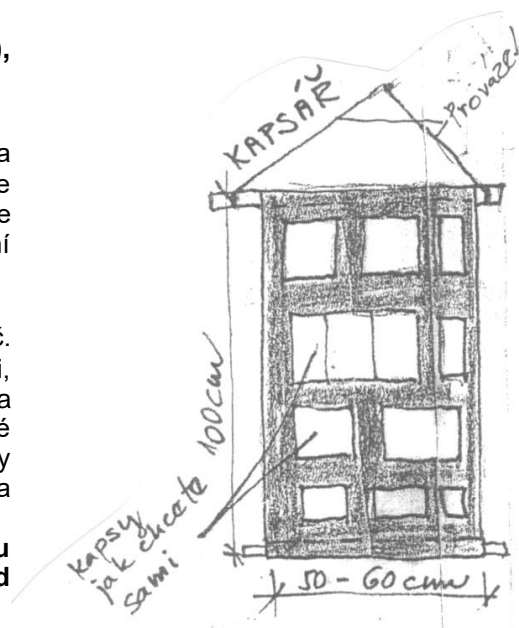 ,
a
e
e
ní
č.
i,
a
é
y
a
u
d
KAPSÁŘ
Provázek
100cm
kapsy
jak chcete
sami
50 - 60 cm